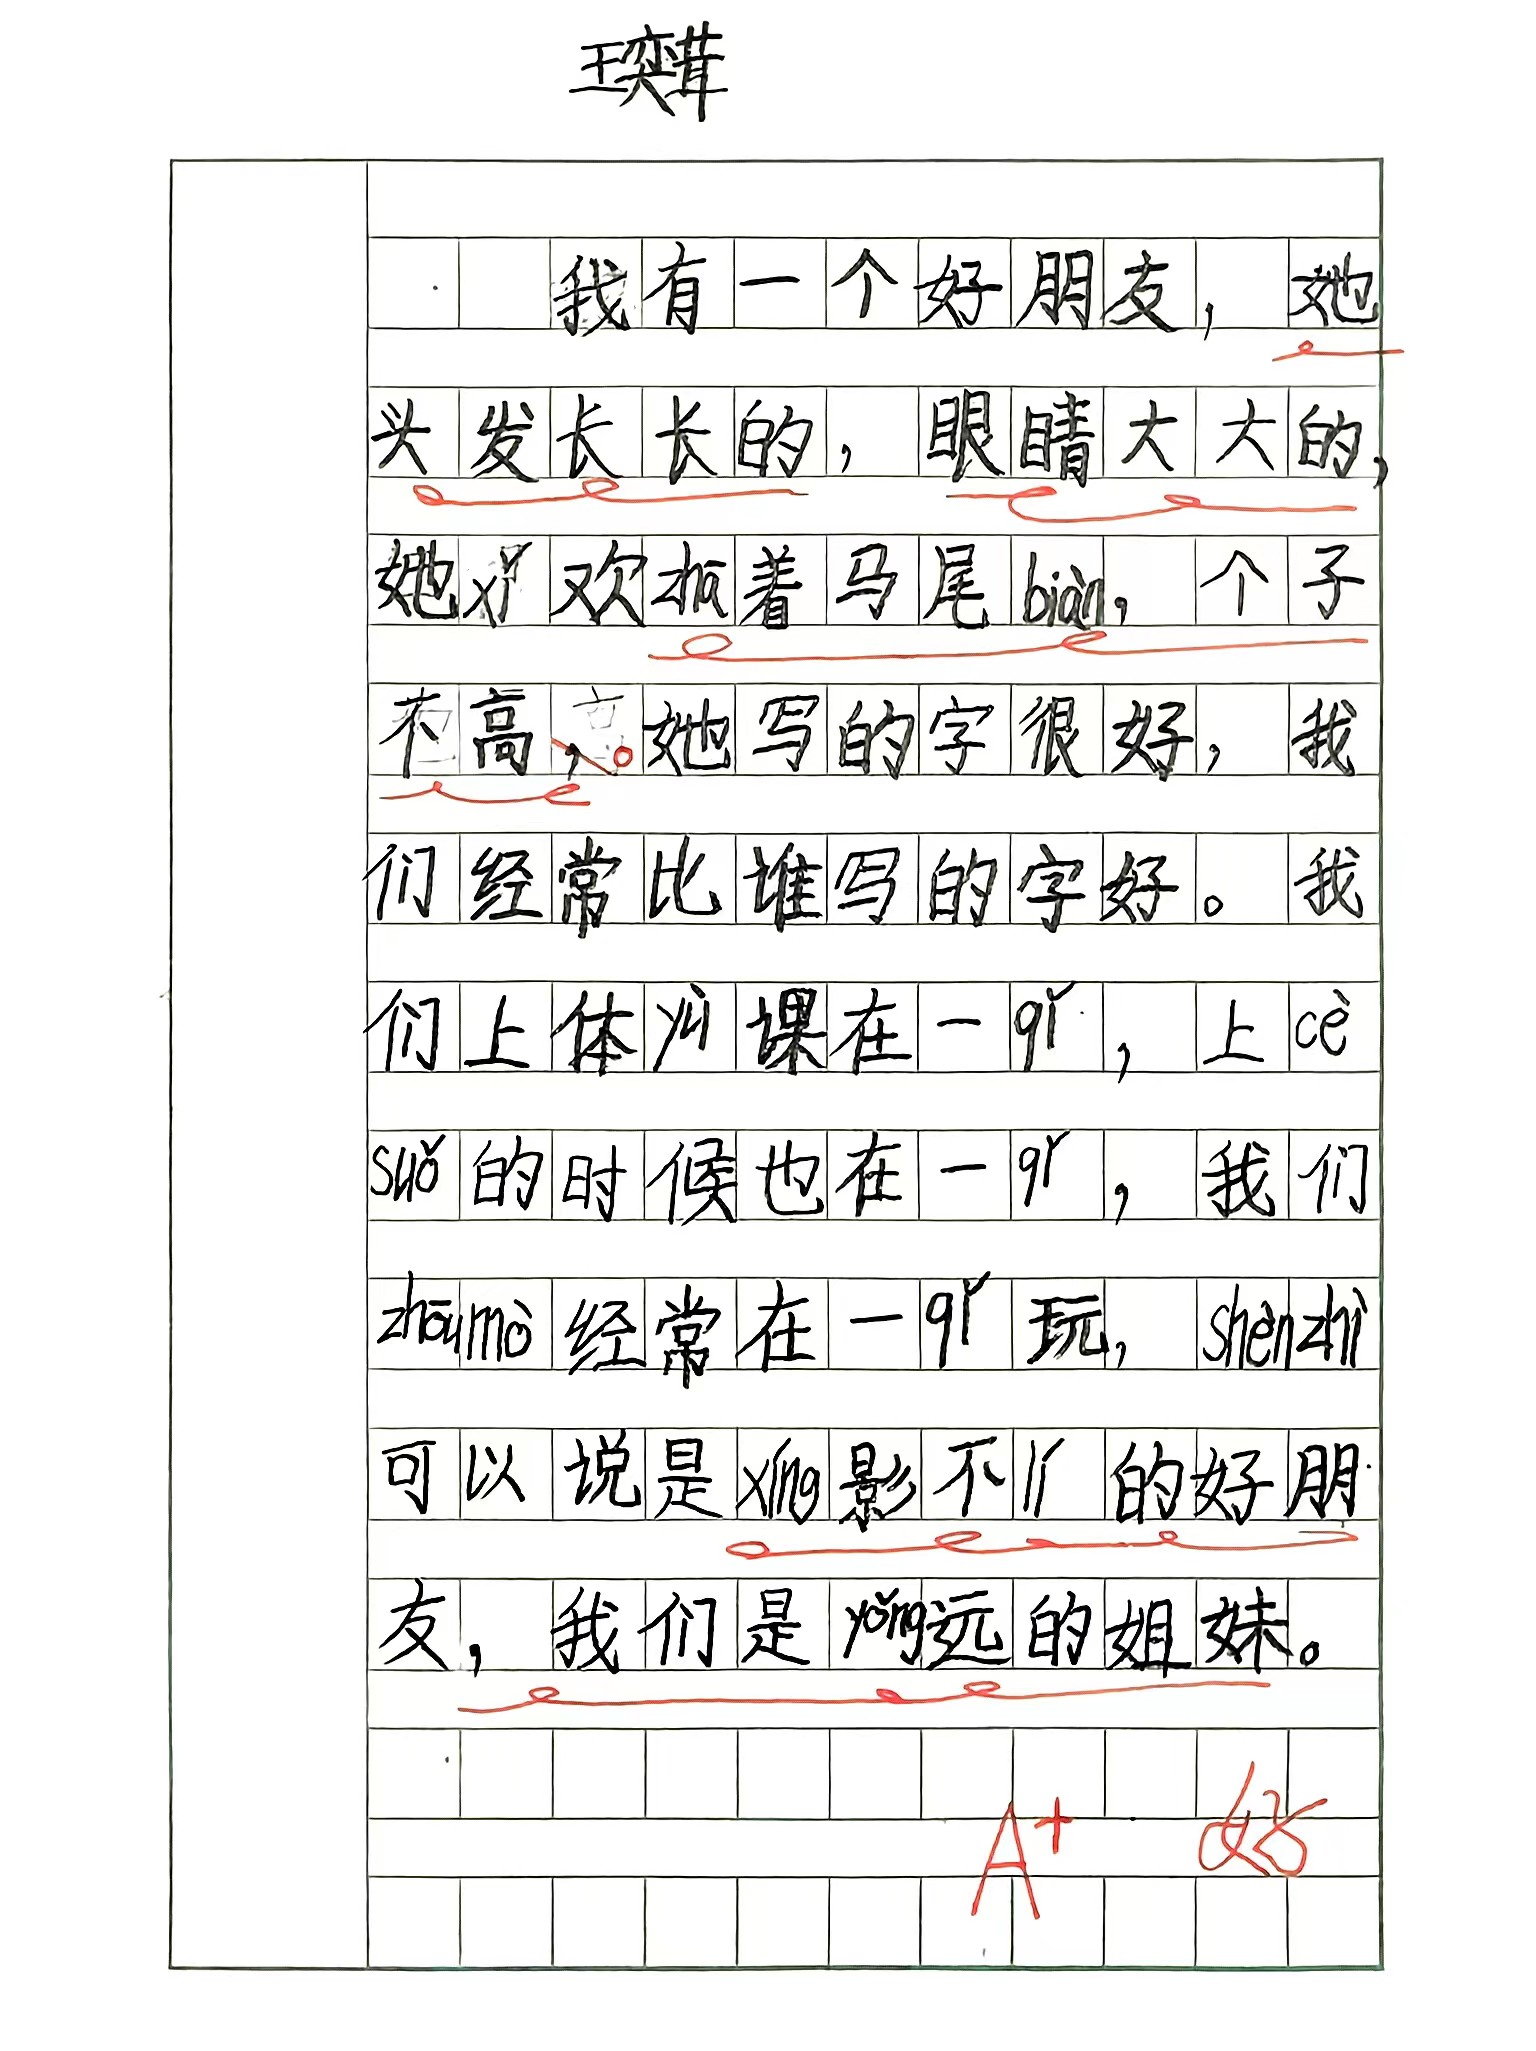 王奕茸
我有一个好朋友，她
头发长长的，眼睛大大的，
她xǐ欢zhā着马尾biàn，个子
不高，。她写的字很好，我
们经常比谁写的字好。我
们上体yù课在一qǐ，上cè
suǒ的时候也在一qǐ，我们
zhōumò经常在一qǐ玩，shènzhì
可以说是xíng影不lí的好朋
友，我们是yǒng远的姐妹。
A+ 好